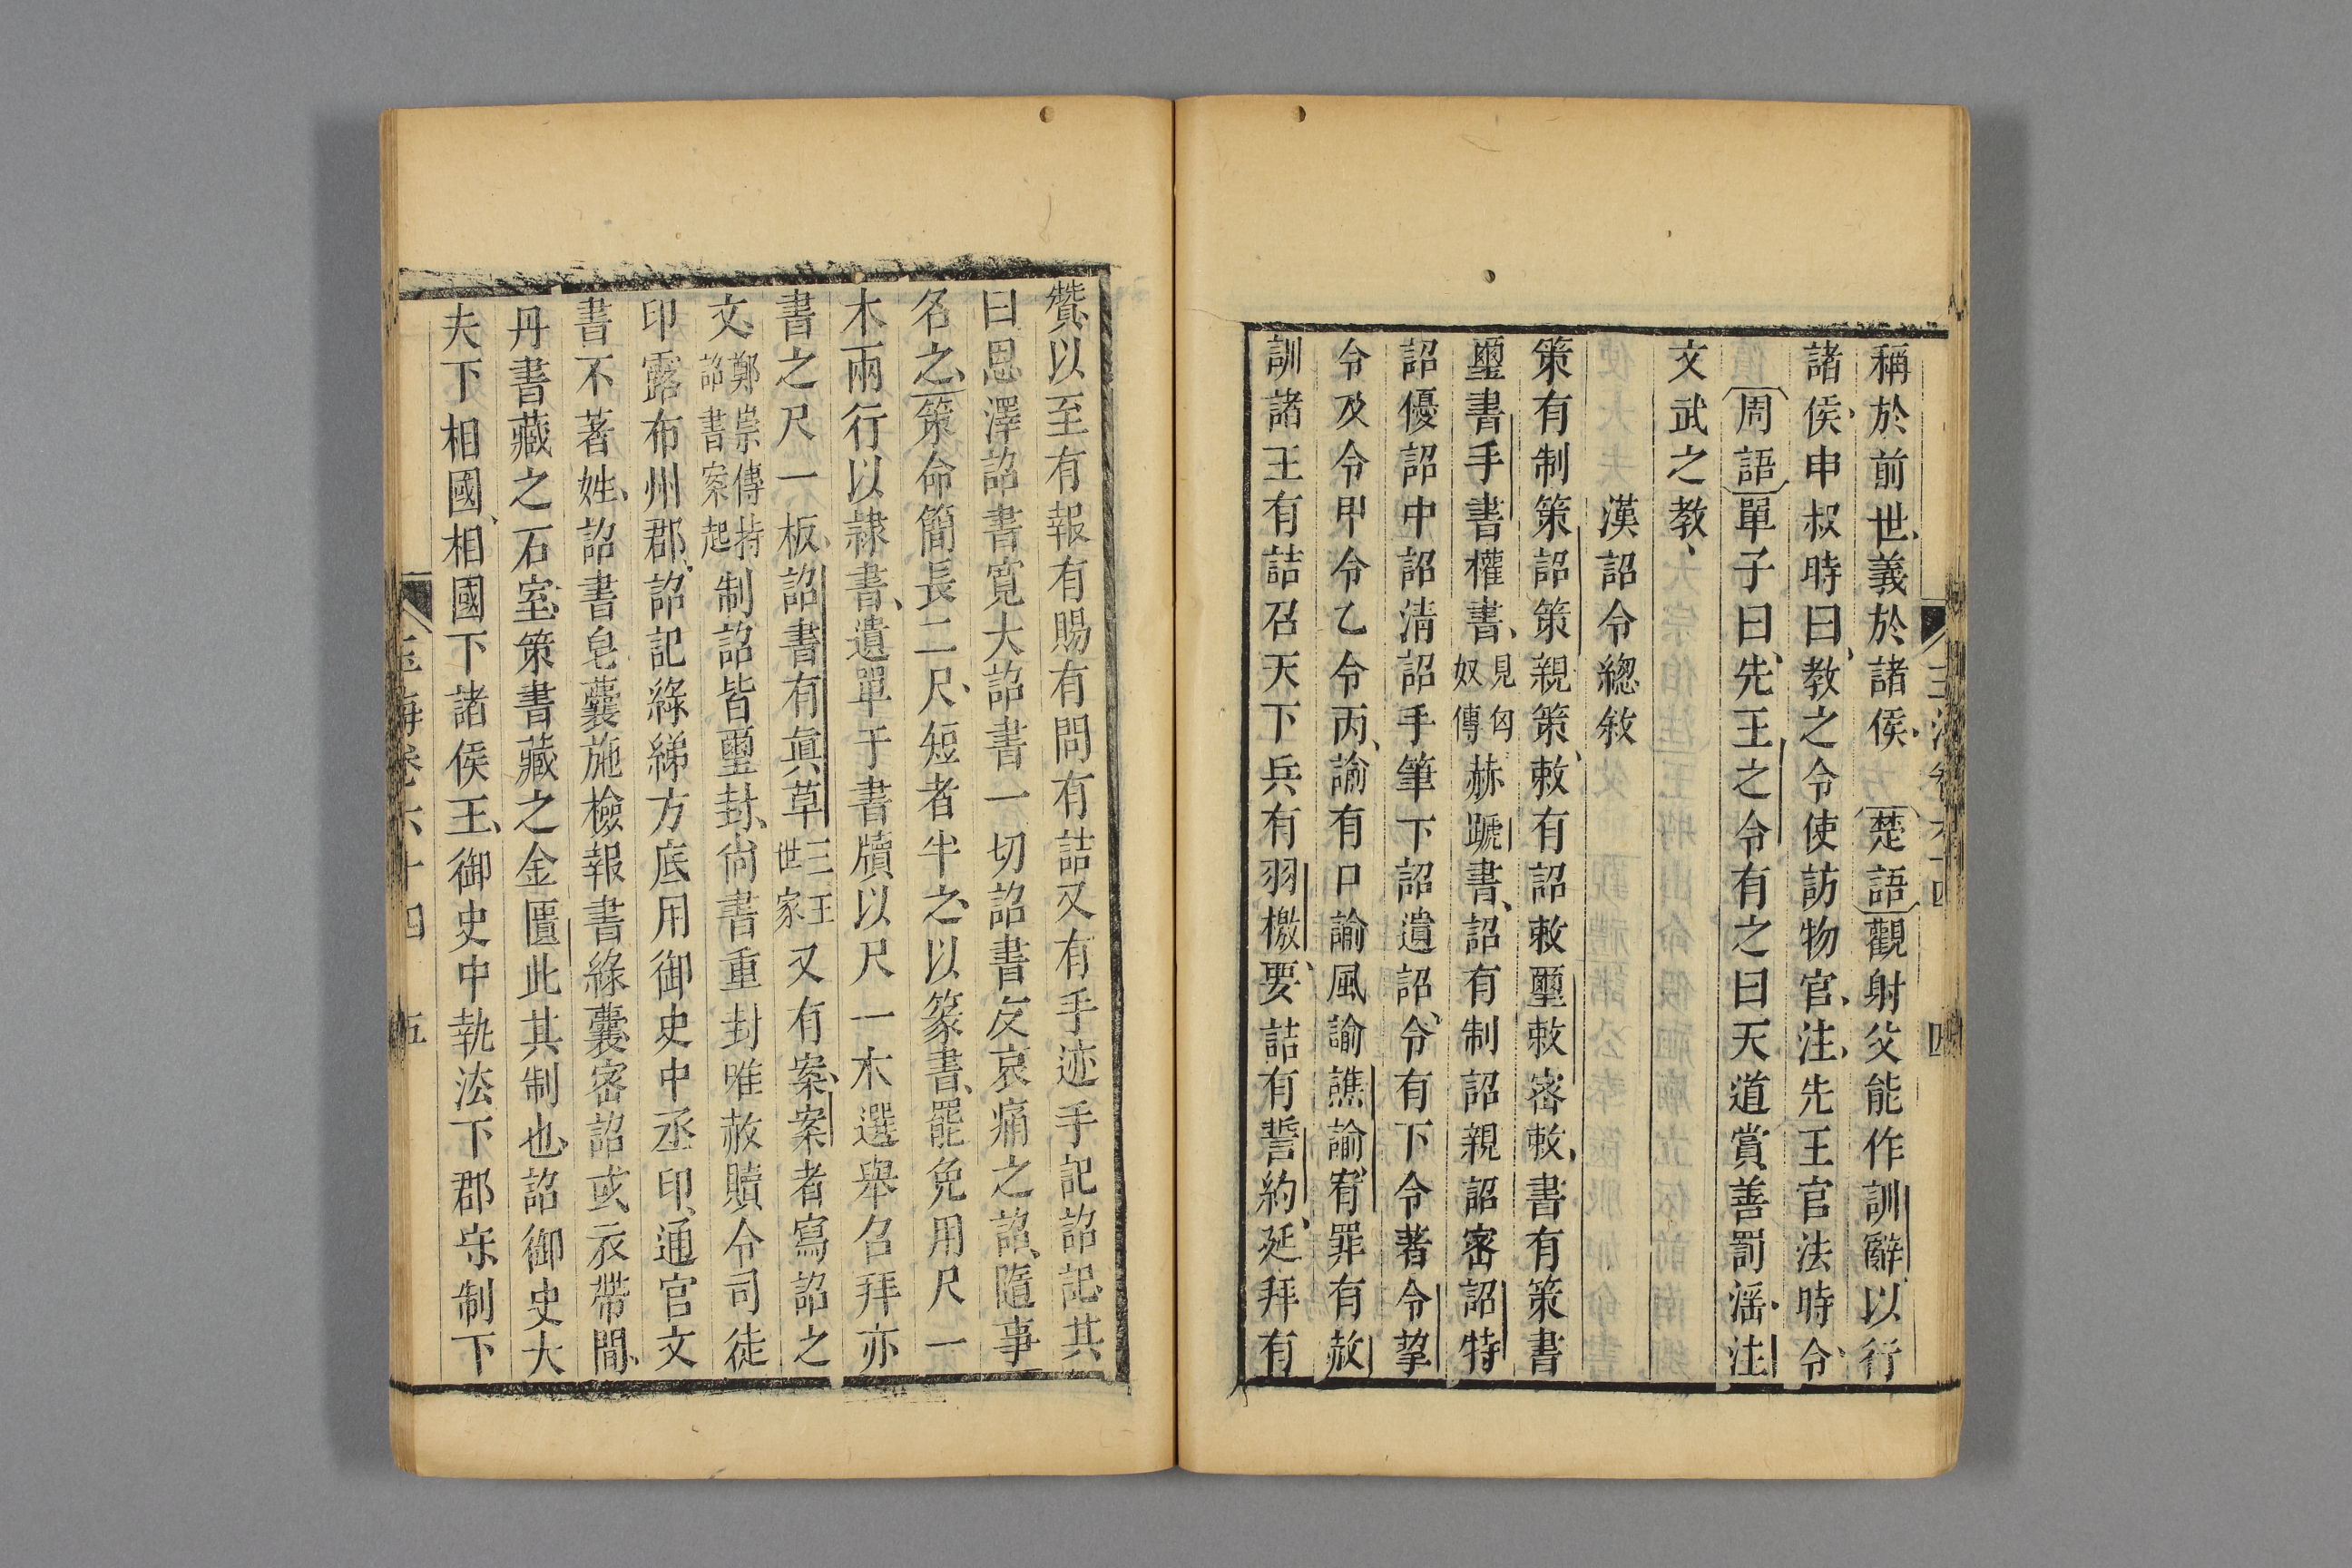 稱於前世義於諸侯楚語觀射父能作訓辭以行
諸侯申叔時曰教之令使訪物官注先王官法時令
周語單子曰先王之令有之曰天道賞善罰滛注
文武之教
漢詔令總敘
策有制策詔策親策敕有詔敕璽敕密敕書有策書
璽書手書權書見匈奴傳赫蹏書詔有制詔親詔密詔特
詔優詔中詔清詔手筆下詔遺詔令有下令著令挈
令及令甲令乙令丙諭有口諭風諭譙諭宥罪有赦
訓諸王有誥召天下兵有羽檄要誥有誓約延拜有
贊以至有報有賜有問有誥又有手迹手記詔記其
曰恩澤詔書寛大詔書一切詔書及哀痛之詔隨事
名之策命簡長二尺短者半之以篆書罷免用尺一
木兩行以隷書遺單于書牘以尺一木選舉召拜亦
書之尺一板詔書有眞草三王世家又有案案者寫詔之
文鄭崇傳持詔書案起制詔皆璽封尚書重封唯赦贖令司徒
印露布州郡詔記綠綈方底用御史中丞印通官文
書不著姓詔書皂囊施檢報書綠囊密詔或衣帶間
丹書藏之石室策書藏之金匱此其制也詔御史大
夫下相國相國下諸侯王御史中執法下郡守制下
玉海卷六十四 五